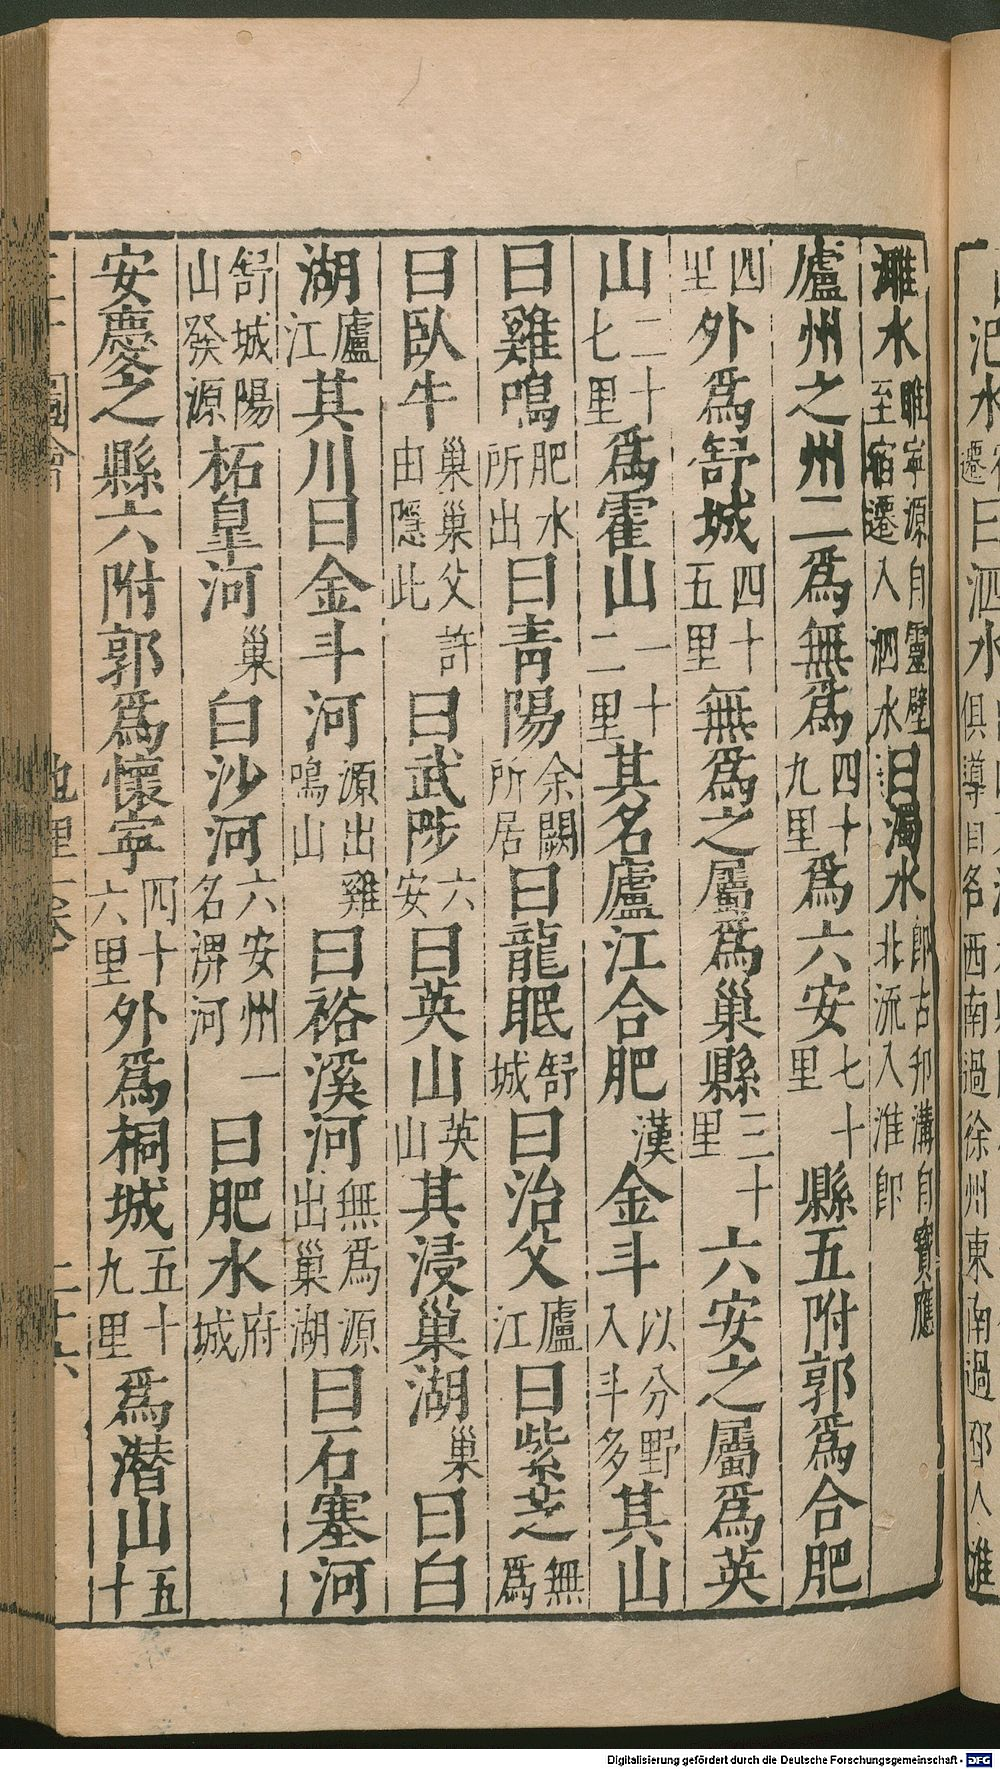 濉水睢寧源自靈壁至宿遷入泗水曰濁水即古邗溝自寶應北流入淮即
廬州之州二為無為四十九里為六安七十里縣五附郭為合肥
四里外為舒城四十五里無為之屬為巢縣三十里六安之屬為英
山二十七里為霍山一十二里其名廬江合肥漢金斗以分野入斗多其山
曰雞鳴肥水所出曰青陽余闕所居曰龍眠舒城曰治父廬江曰紫芝無為
曰臥牛巢巢父許由隱此曰武陟六安曰英山英山其浸巢湖巢曰白
湖廬江其川曰金斗河源出雞鳴山曰裕溪河無為源出巢湖曰石塞河
舒城陽山發源柘皐河巢白沙河六安州一名渒河曰肥水府城
安慶之縣六附郭為懷寧四十六里外為桐城五十九里為潛山五十
三才圖會 地理六卷 二十六
汜水
遷曰泗水
俱導
西南過徐州東南過邳入淮
Digitalisierung gefördert durch die Deutsche Forschungsgemeinschaft - DFG